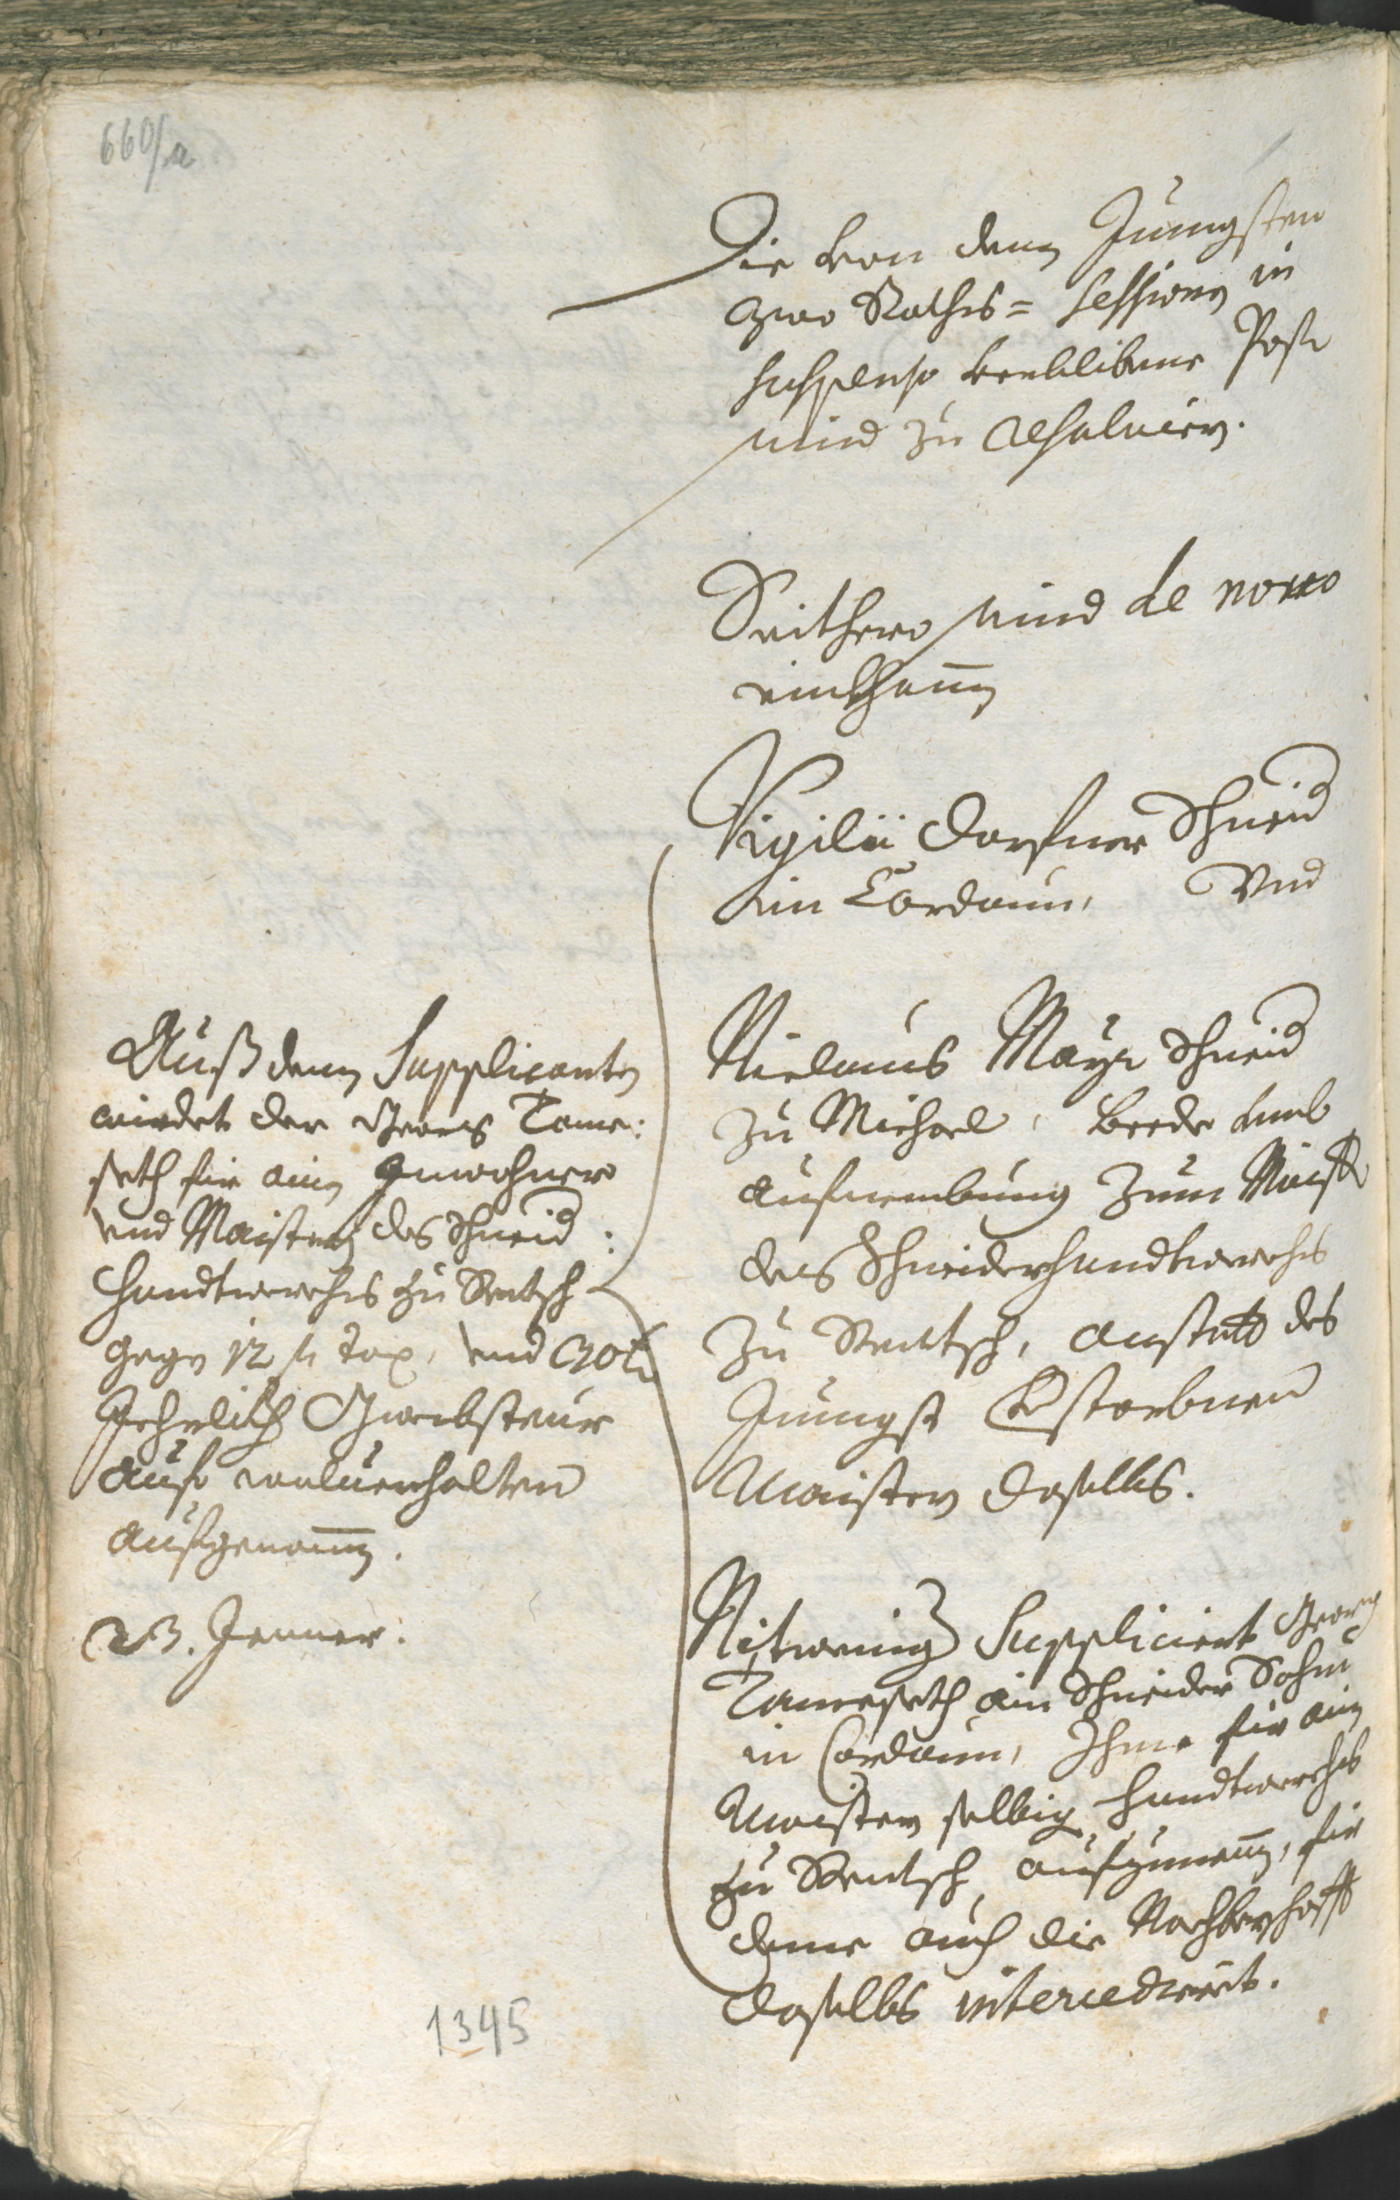 660/a
Die von dem Jungsten
zwo Rathes= session in
suspenso verblibene Posst
und zu resoluiern.
Seithero sind de novo
einkhomen
Vigilii Dorfner Schneid
in Cordaun, Vnd
Niclaus Mayr Schneid
zu Michael, beede umb
aufnembung zum Maister
des Schneiderhandtwerchs
zu Rentsch, anstatt des
Jungst verstorbnen
Maister daselbs.
Nitwenig Suppliciert Georg
Tomaseth ein Schneider Sohn
in Cardaun, Ihme für ain
Maister selbig Handtwerchs
zu Rentsch aufzunemen, für
deme auch die Nachberschafft
daselbs intercediert.
Auß denen Supplicanten
wirdet der Georg Toma:
seth für ain Inwohner
und Maister des Schneid:
handtwerchs zu Rentsch
gegen 12 fl Tax, und
Jehrlich Gwerbsteur
auf wolverhalten
aufgenomen.
23. Jenner.
1345